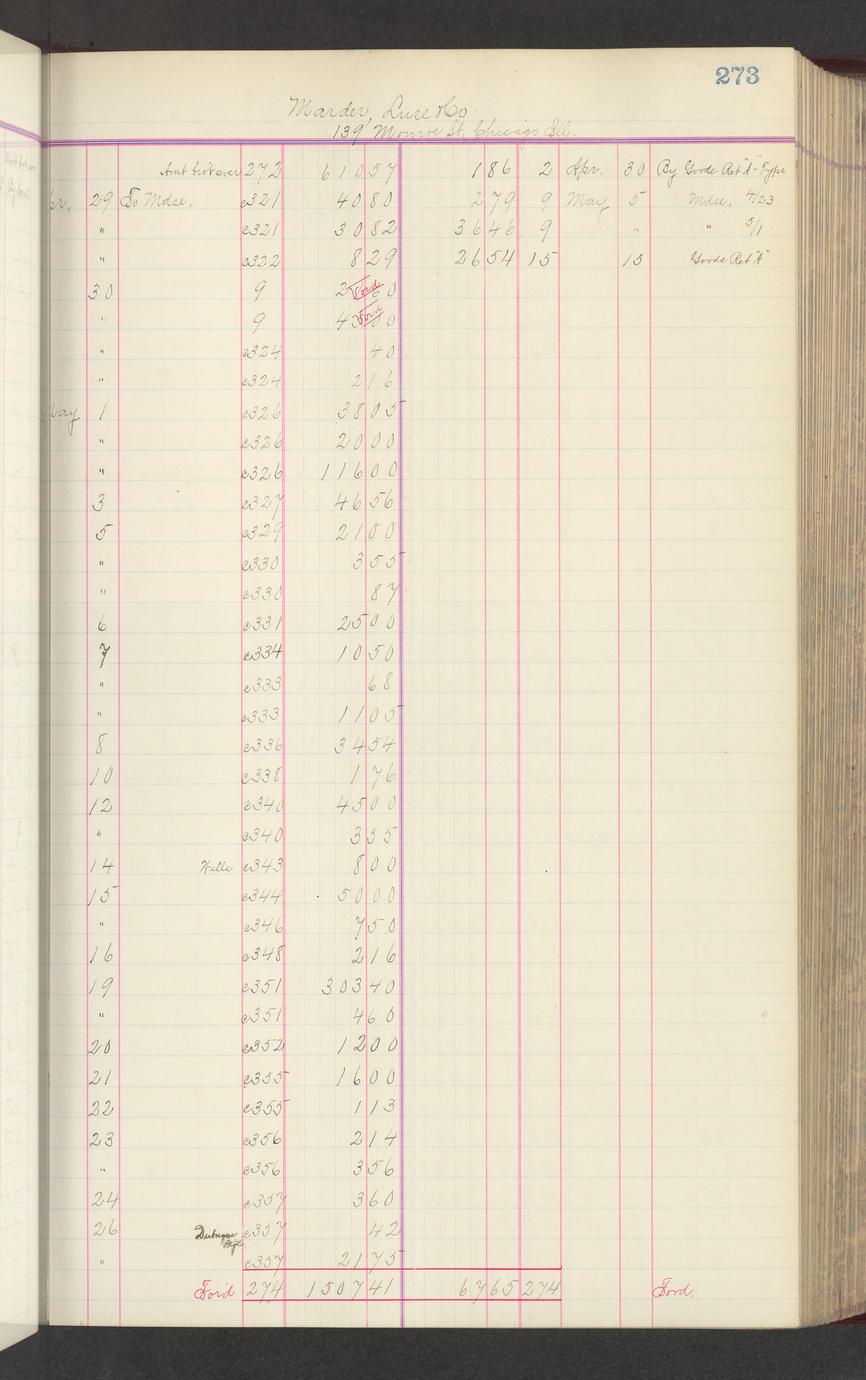 273
Marder, Luse & Co.
139 Monroe St, Chicago Ill.
Amt bro't over 272 610 57 1 86 2 Apr. 30 By Goods Ret "A" - Type
Apr. 29 To Mdse, c321 40 80 2 79 9 May 5 Mdse, 4/23
" c321 30 82 36 46 9 " " 5/1
" c322 8 29 26 54 15 15 Goods Ret "A"
30 9
" 9
" c324 40
" c324 2 16
May 1 c326 38 05
" c326 20 00
" c326 116 00
3 c327 46 56
5 c329 21 00
" c330 3 55
" c330 87
6 c331 25 00
7 c334 10 50
" c333 68
" c333 11 05
8 c336 34 54
10 c338 1 76
12 c340 45 00
" c340 3 55
14 c343 8 00
15 c344 50 00
" c346 7 50
16 c348 2 16
19 c351 303 40
" c351 4 60
20 c352 12 00
21 c355 16 00
22 c355 1 13
23 c356 2 14
" c356 3 56
24 c357 3 60
26 Dubuque c357 42
" c357 21 75
For'd 274 1507 41 67 65 274 Ford.